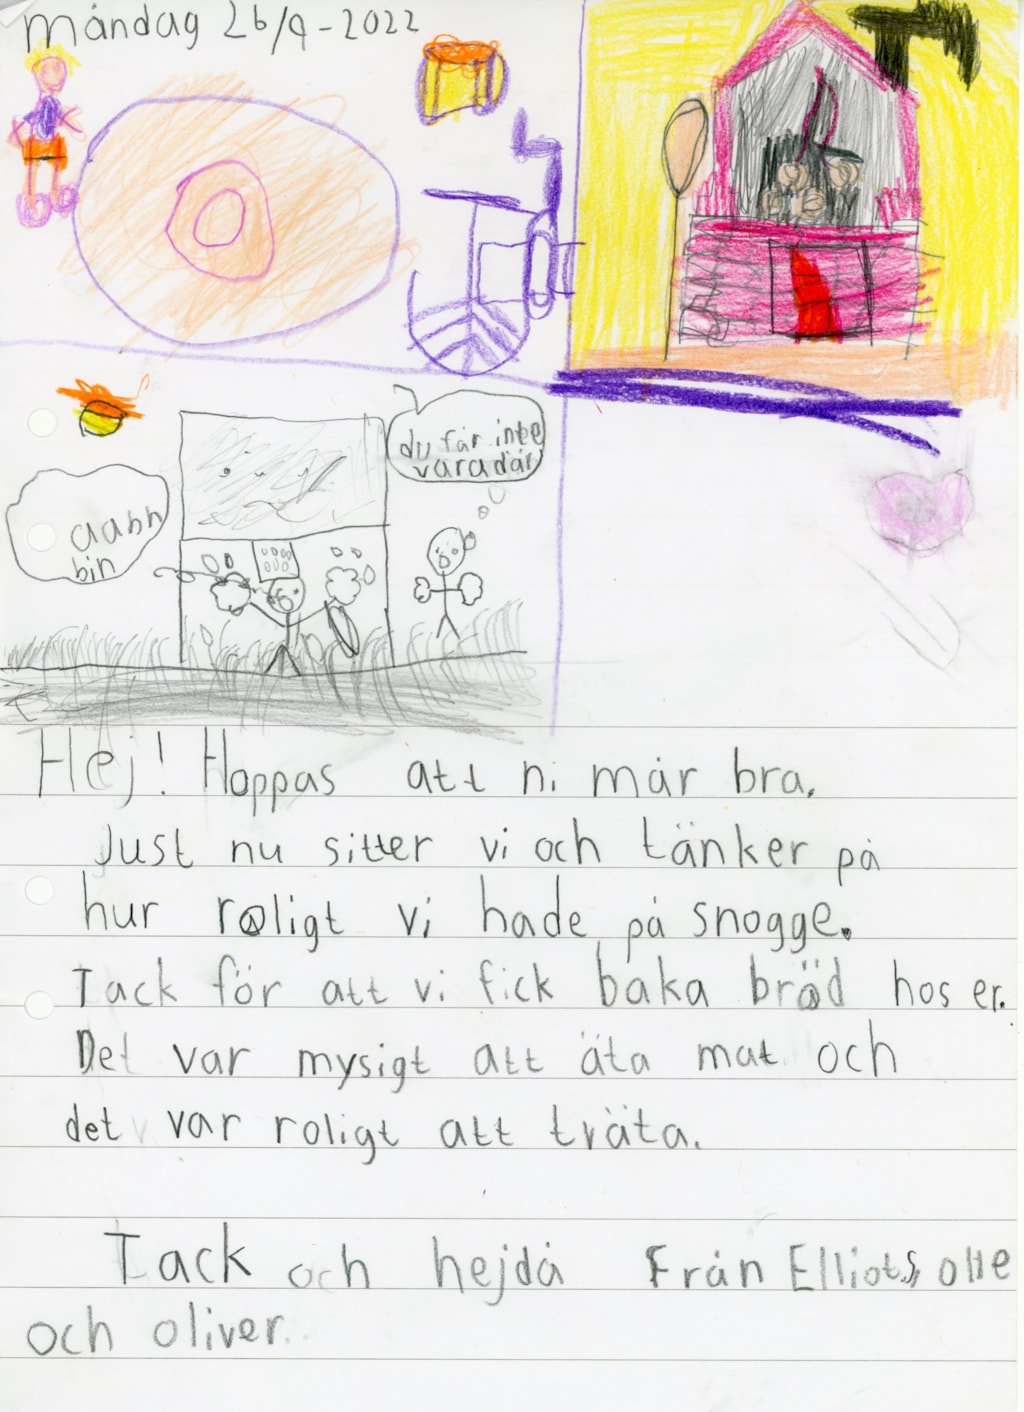 måndag 26/9-2022
du får inte
vara där
aahh
bin
Hej! Hoppas att ni mår bra.
Just nu sitter vi och tänker på
hur roligt vi hade på snogge.
Tack för att vi fick baka bröd hos er.
Det var mysigt att äta mat och
det var roligt att träta.
Tack och hejdå Från Elliots, olle
och oliver.